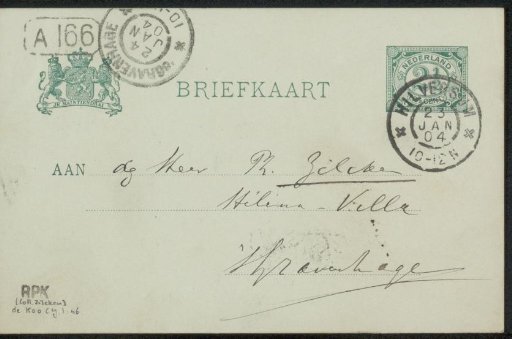 A 166
'SGRAVENHAGE
24
JAN
04
JE MAINTIENDRAI
BRIEFKAART
NEDERLAND
2½
HILVERSUM
23
JAN
04
10-12N
AAN de Heer Ph. Zilcken
Hélène-Villa
's Gravenhage
RPK
(coll. Zilcken)